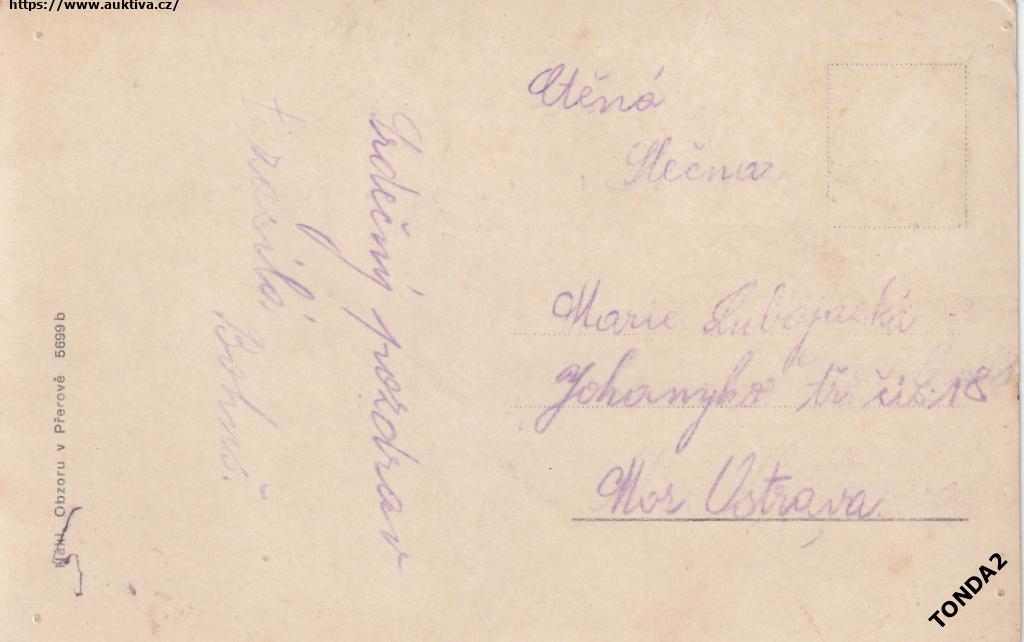 https://www.auktiva.cz/
Srdečný pozdrav
ti zasílá
Bohuš.
Ctěná
Slečna
Marie Lubojacká
Johanyho tř. čís. 18
Mor Ostrava.
Nákl. Obzoru v Přerově 5699 b
TONDA2